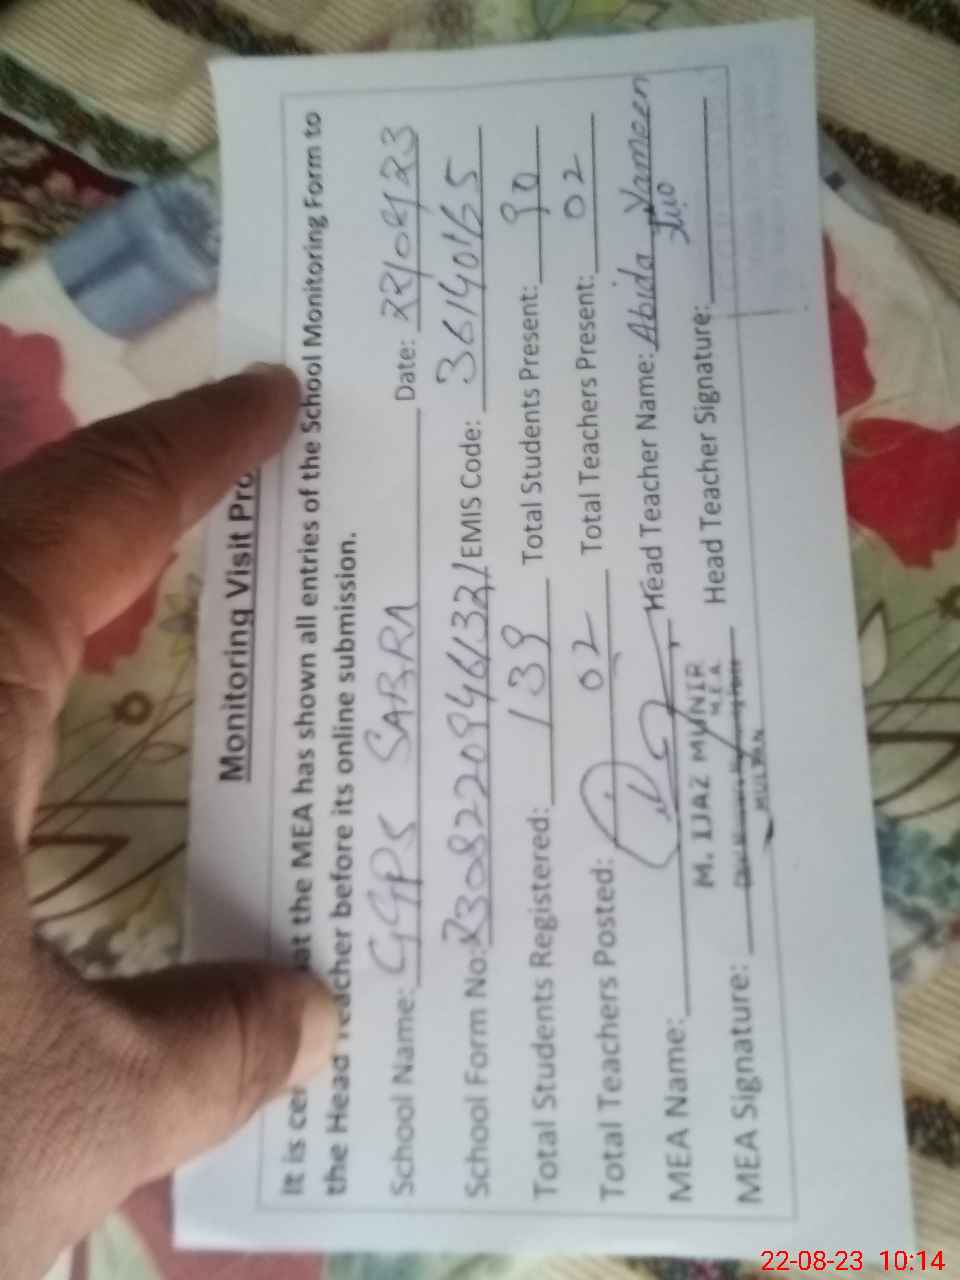 Monitoring Visit Pro
It is cer at the MEA has shown all entries of the School Monitoring Form to
the Head Teacher before its online submission.
School Name: GGPS SABRA Date: 22/08/23
School Form No: EMIS Code: 36140165
Total Students Registered: 139 Total Students Present: 90
Total Teachers Posted: 02 Total Teachers Present: 02
MEA Name: Head Teacher Name: Abida Yameen
M. IJAZ MUNIR
M.E.A
MEA Signature: Head Teacher Signature:
MULTAN
22-08-23 10:14